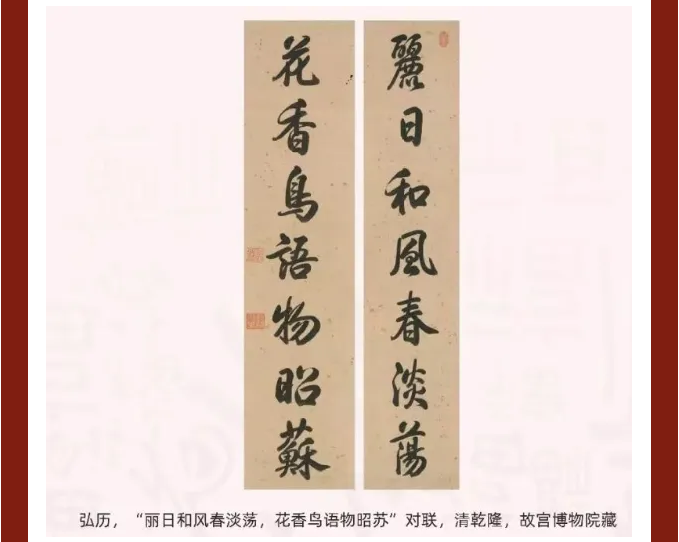 麗日和風春淡蕩
花香鳥語物昭蘇
弘历，“丽日和风春淡荡，花香鸟语物昭苏”对联，清乾隆，故宫博物院藏